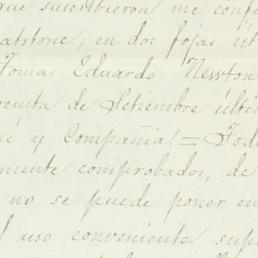 que suscribieron me conf
atstone; en dos fojas út
Tomas Eduardo Newton
treinta de Setiembre últi
é y Compañia. = Tod
mente comprobados, de
no se puede poner en
l uso conveniente sup